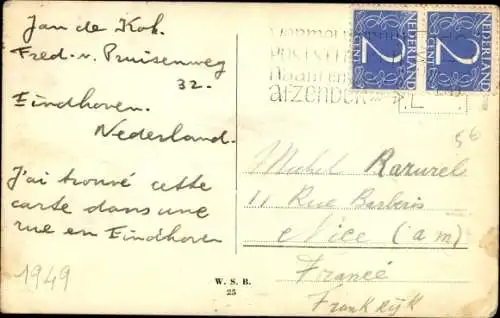 Jan de Kok.
Fred. v. Pruisenweg
32.
Eindhoven.
Nederland.
J'ai trouvé cette
carte dans une
rue en Eindhoven
1949
W. S. B.
25
NEDERLAND
2
CENT
NEDERLAND
2
CENT
VERMELD
POSTST
NAAM EN
AFZENDER
56
Michel Razurel
11 Rue Barberis
Nice (a m)
France
Frankrijk